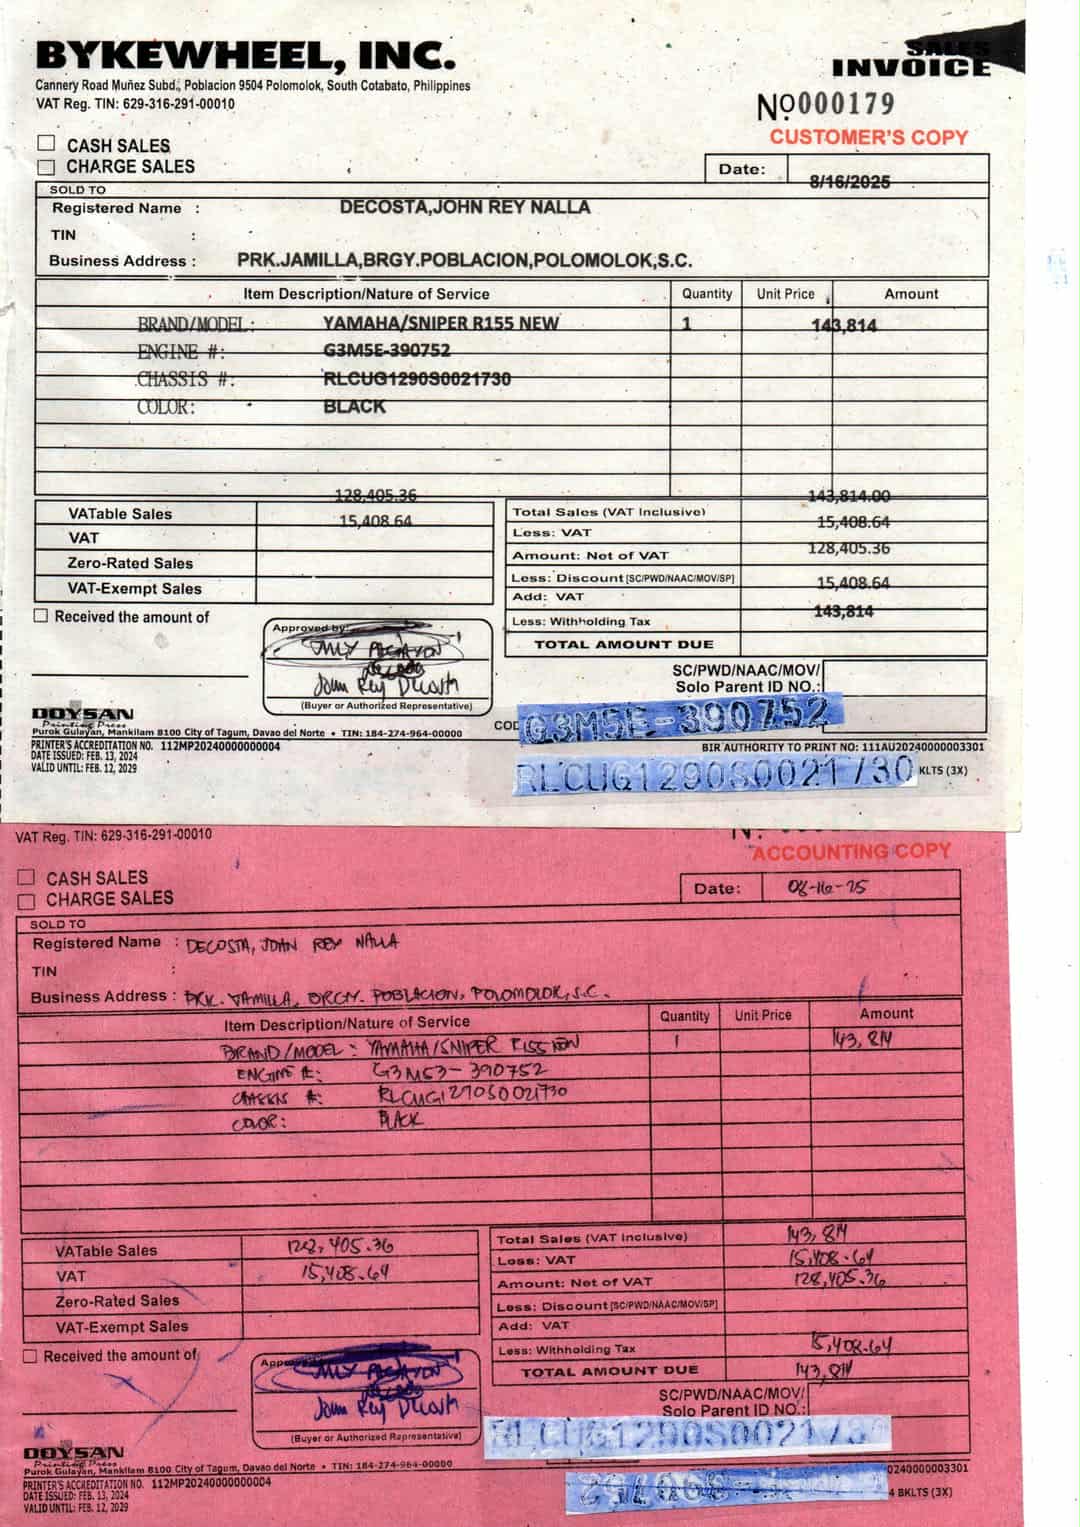 BYKEWHEEL, INC.
Cannery Road Muñez Subd., Poblacion 9504 Polomolok, South Cotabato, Philippines
VAT Reg. TIN: 629-316-291-00010
SALES
INVOICE
Nº 000179
CUSTOMER'S COPY
CASH SALES
CHARGE SALES
Date: 8/16/2025
SOLD TO
Registered Name : DECOSTA,JOHN REY NALLA
TIN :
Business Address : PRK.JAMILLA,BRGY.POBLACION,POLOMOLOK,S.C.
Item Description/Nature of Service Quantity Unit Price Amount
BRAND/MODEL: YAMAHA/SNIPER R155 NEW 1 143,814
ENGINE #: G3M5E-390752
CHASSIS #: RLCUG1290S0021730
COLOR: BLACK
128,405.36 143,814.00
VATable Sales 15,408.64 Total Sales (VAT Inclusive) 15,408.64
VAT Less: VAT
Zero-Rated Sales Amount: Net of VAT 128,405.36
VAT-Exempt Sales Less: Discount [SC/PWD/NAAC/MOV/SP] 15,408.64
Add: VAT
Received the amount of Less: Withholding Tax 143,814
Approved by:
TOTAL AMOUNT DUE
John Rey Decosta
(Buyer or Authorized Representative)
SC/PWD/NAAC/MOV/
Solo Parent ID NO.:
G3M5E-390752
DOYSAN
Printing Press
Purok Gulayan, Mankilam 8100 City of Tagum, Davao del Norte • TIN: 184-274-964-00000
PRINTER'S ACCREDITATION NO. 112MP20240000000004
DATE ISSUED: FEB. 13, 2024
VALID UNTIL: FEB. 12, 2029
BIR AUTHORITY TO PRINT NO: 111AU20240000003301
RLCUG1290S0021730
KLTS (3X)
VAT Reg. TIN: 629-316-291-00010
ACCOUNTING COPY
CASH SALES
CHARGE SALES
Date: 08-16-25
SOLD TO
Registered Name : DECOSTA, JOHN REY NALLA
TIN :
Business Address : PRK. JAMILLA, BRGY. POBLACION, POLOMOLOK, S.C.
Item Description/Nature of Service Quantity Unit Price Amount
BRAND/MODEL : YAMAHA/SNIPER R155 NEW 1 143,814
ENGINE #: G3M53-390752
CHASSIS #: RLCUG1290S0021730
COLOR: BLACK
VATable Sales 128,405.36 Total Sales (VAT Inclusive) 143,814
VAT 15,408.64 Less: VAT 15,408.64
Zero-Rated Sales Amount: Net of VAT 128,405.36
VAT-Exempt Sales Less: Discount [SC/PWD/NAAC/MOV/SP]
Add: VAT
Received the amount of Less: Withholding Tax 15,408.64
TOTAL AMOUNT DUE 143,814
John Rey Decosta
(Buyer or Authorized Representative)
SC/PWD/NAAC/MOV/
Solo Parent ID NO.:
RLCUG1290S0021730
DOYSAN
Printing Press
Purok Gulayan, Mankilam 8100 City of Tagum, Davao del Norte • TIN: 184-274-964-00000
PRINTER'S ACCREDITATION NO. 112MP20240000000004
DATE ISSUED: FEB. 13, 2024
VALID UNTIL: FEB. 12, 2029
0240000003301
4 BKLTS (3X)